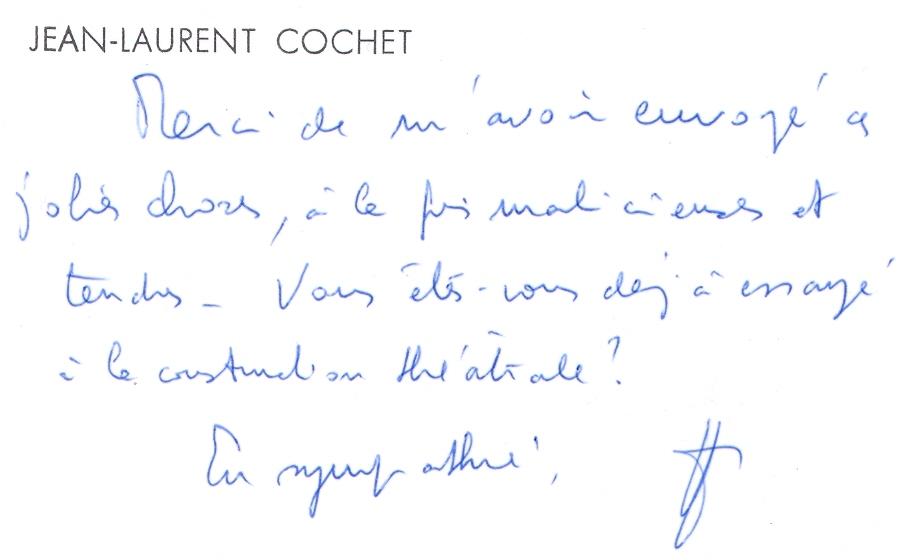 JEAN-LAURENT COCHET
Merci de m'avoir envoyé ces
jolies choses, à la fois malicieuses et
tendres - Vous êtes-vous déjà essayé
à la construction théâtrale ?
En sympathie,